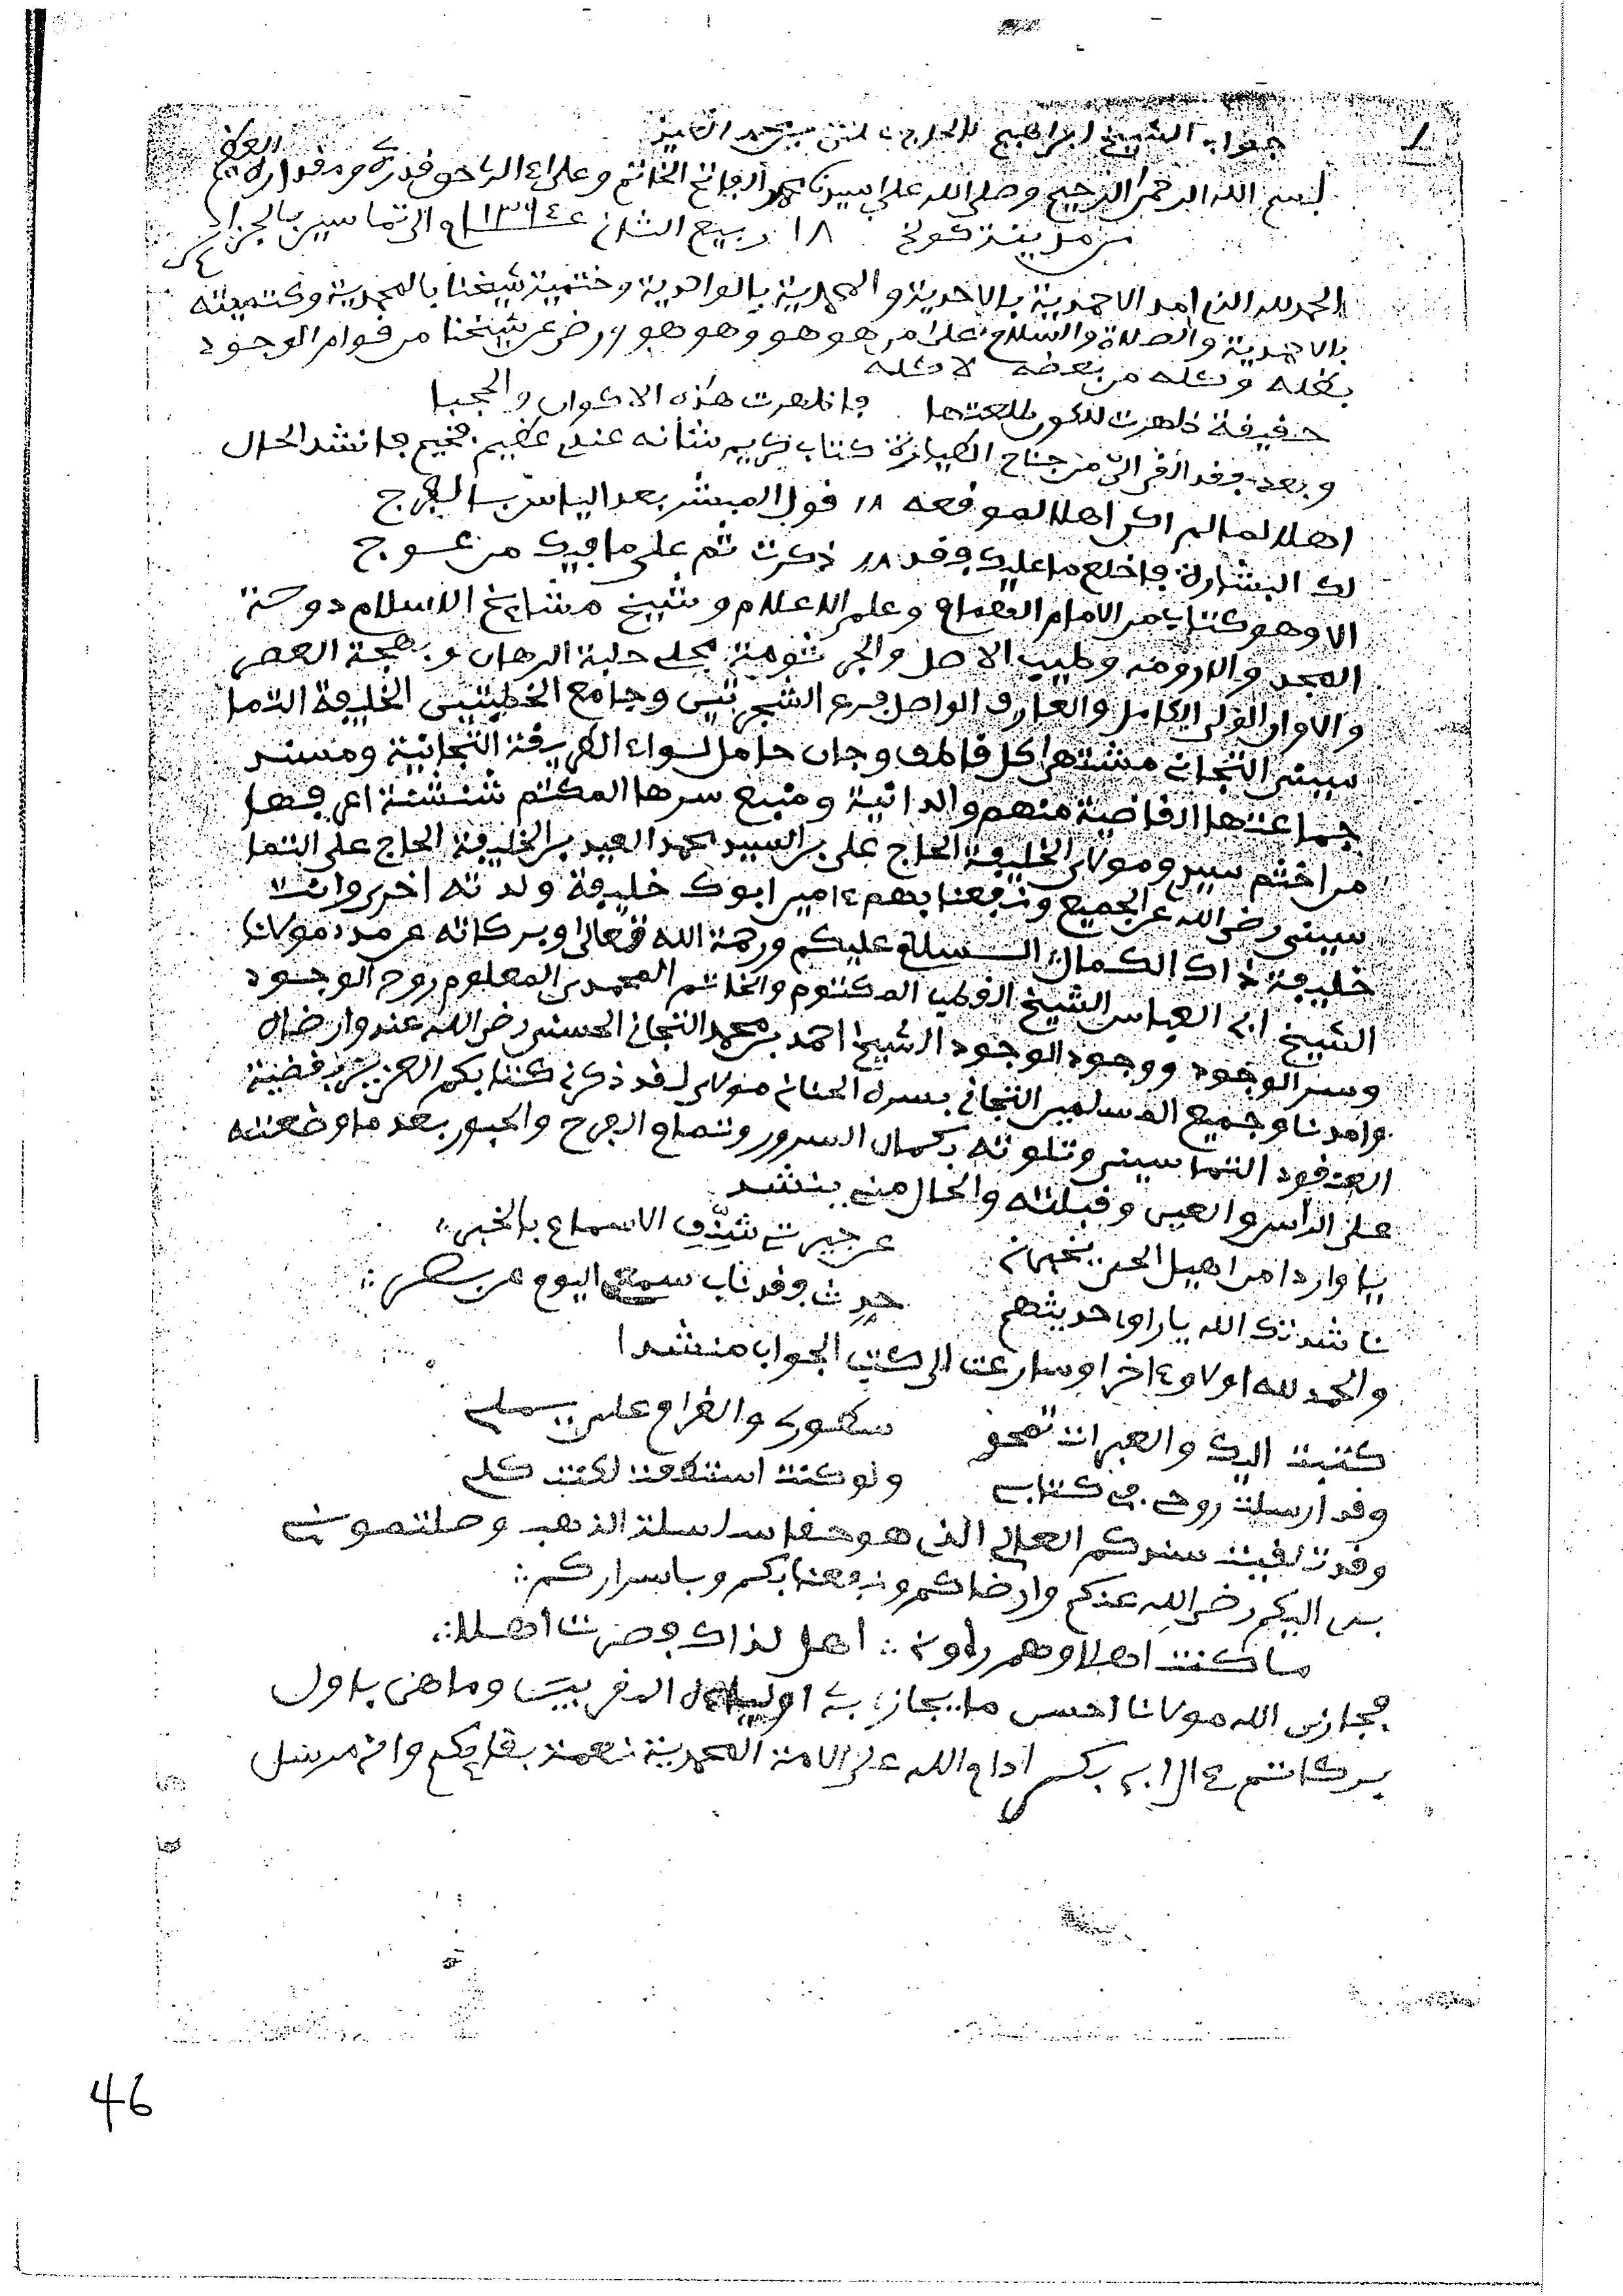 جواب الشيخ ابراهيم للحاج علي بن محمد العيد
بسم الله الرحمن الرحيم وصلى الله على سيدنا محمد الفاتح الخاتم وعلى ءاله حق قدره ومقداره العظيم
من مدينة كولخ ١٨ ربيع الثاني عام ١٣٦٤ الى تماسين بالجزائر
الحمد لله الذي امد الاحمدية بالاحدية والمحمدية بالواحدية وختمية شيخنا بالمحمدية وكتميته
بالاحمدية والصلاة والسلام على من هو هو وهو هو ورضي عن شيخنا من قوام الوجود
بكله وكله من بعضه لا كله
حقيقة ظهرت للكون طلعتها فاظهرت هذه الاكوان والحجبا
وبعد فقد القي الي من جناح الطيارة كتاب كريم شانه عندي عظيم فخيم فانشد الحال
اهلا لما لم اكن اهلا لموقعه قول المبشر بعد الياس بالفرج
لك البشارة فاخلع ما عليك فقد ذكرت ثم على ما فيك من عوج
الا وهو كتاب من الامام الهمام وعلم الاعلام وشيخ مشايخ الاسلام دوحة
المجد والارومة وطيب الاصل والجرثومة مجلي حلبة الرهان وبهجة العصر
والاوان الولي الكامل والعارف الواصل فرع الشجرتين وجامع الخطتين الخليفة التما
سيني التجاني مشتهى كل قاطف وجان حامل لواء الطريقة التجانية ومسند
جماعتها القاصية منهم والدانية ومنبع سرها المكتم شنشنة اعرفها
من اخزم سيدي ومولاي الخليفة الحاج علي بن السيد محمد العيد بن الخليفة الحاج علي التما
سيني رضي الله عن الجميع ونفعنا بهم ءامين ابوك خليفة ولدته اخرى وانت
خليفة ذاك الكمال السلام عليكم ورحمة الله تعالى وبركاته عن مدد مولانا
الشيخ ابي العباس الشيخ القطب المكتوم والخاتم المحمدي المعلوم روح الوجود
وسر الوجود ووجود الوجود الشيخ احمد بن محمد التجاني الحسني رضي الله عنه وارضاه
وامدنا وجميع المسلمين التجاني بسره الحناني مولاي لقد ذكرني كتابكم العزيز قضية
العنقود التماسيني وتلوته بكمال السرور وتمام الفرح والحبور بعد ما وضعته
على الراس والعين وقبلته والحال مني ينشد
يا واردا من اهيل الحي يخبرني عن جيرتي شنف الاسماع بالخبر
ناشدتك الله يا راوي حديثهم حدث فقد ناب سمعي اليوم عن بصري
والحمد لله اولا وءاخرا وسارعت الى كتب الجواب منشدا
كتبت اليك والعبرات تمحو سطوري والغرام علي يملي
وقد ارسلت روحي في كتابي ولو كنت استطعت لكنت كلي
وقد تلقيت سندكم العالي الذي هو حقا سلسلة الذهب وصلتموني
به اليكم رضي الله عنكم وارضاكم ونفعنا بكم وباسراركم
ما كنت اهلا وهم راوني اهل لذاك فصرت اهلا
فجازى الله مولانا احسن ما يجازي به اولياءه المقربين وما هي باول
بركاتكم ءال ابي بكر ادام الله على الامة المحمدية نعمة بقائكم واني مرسل
46